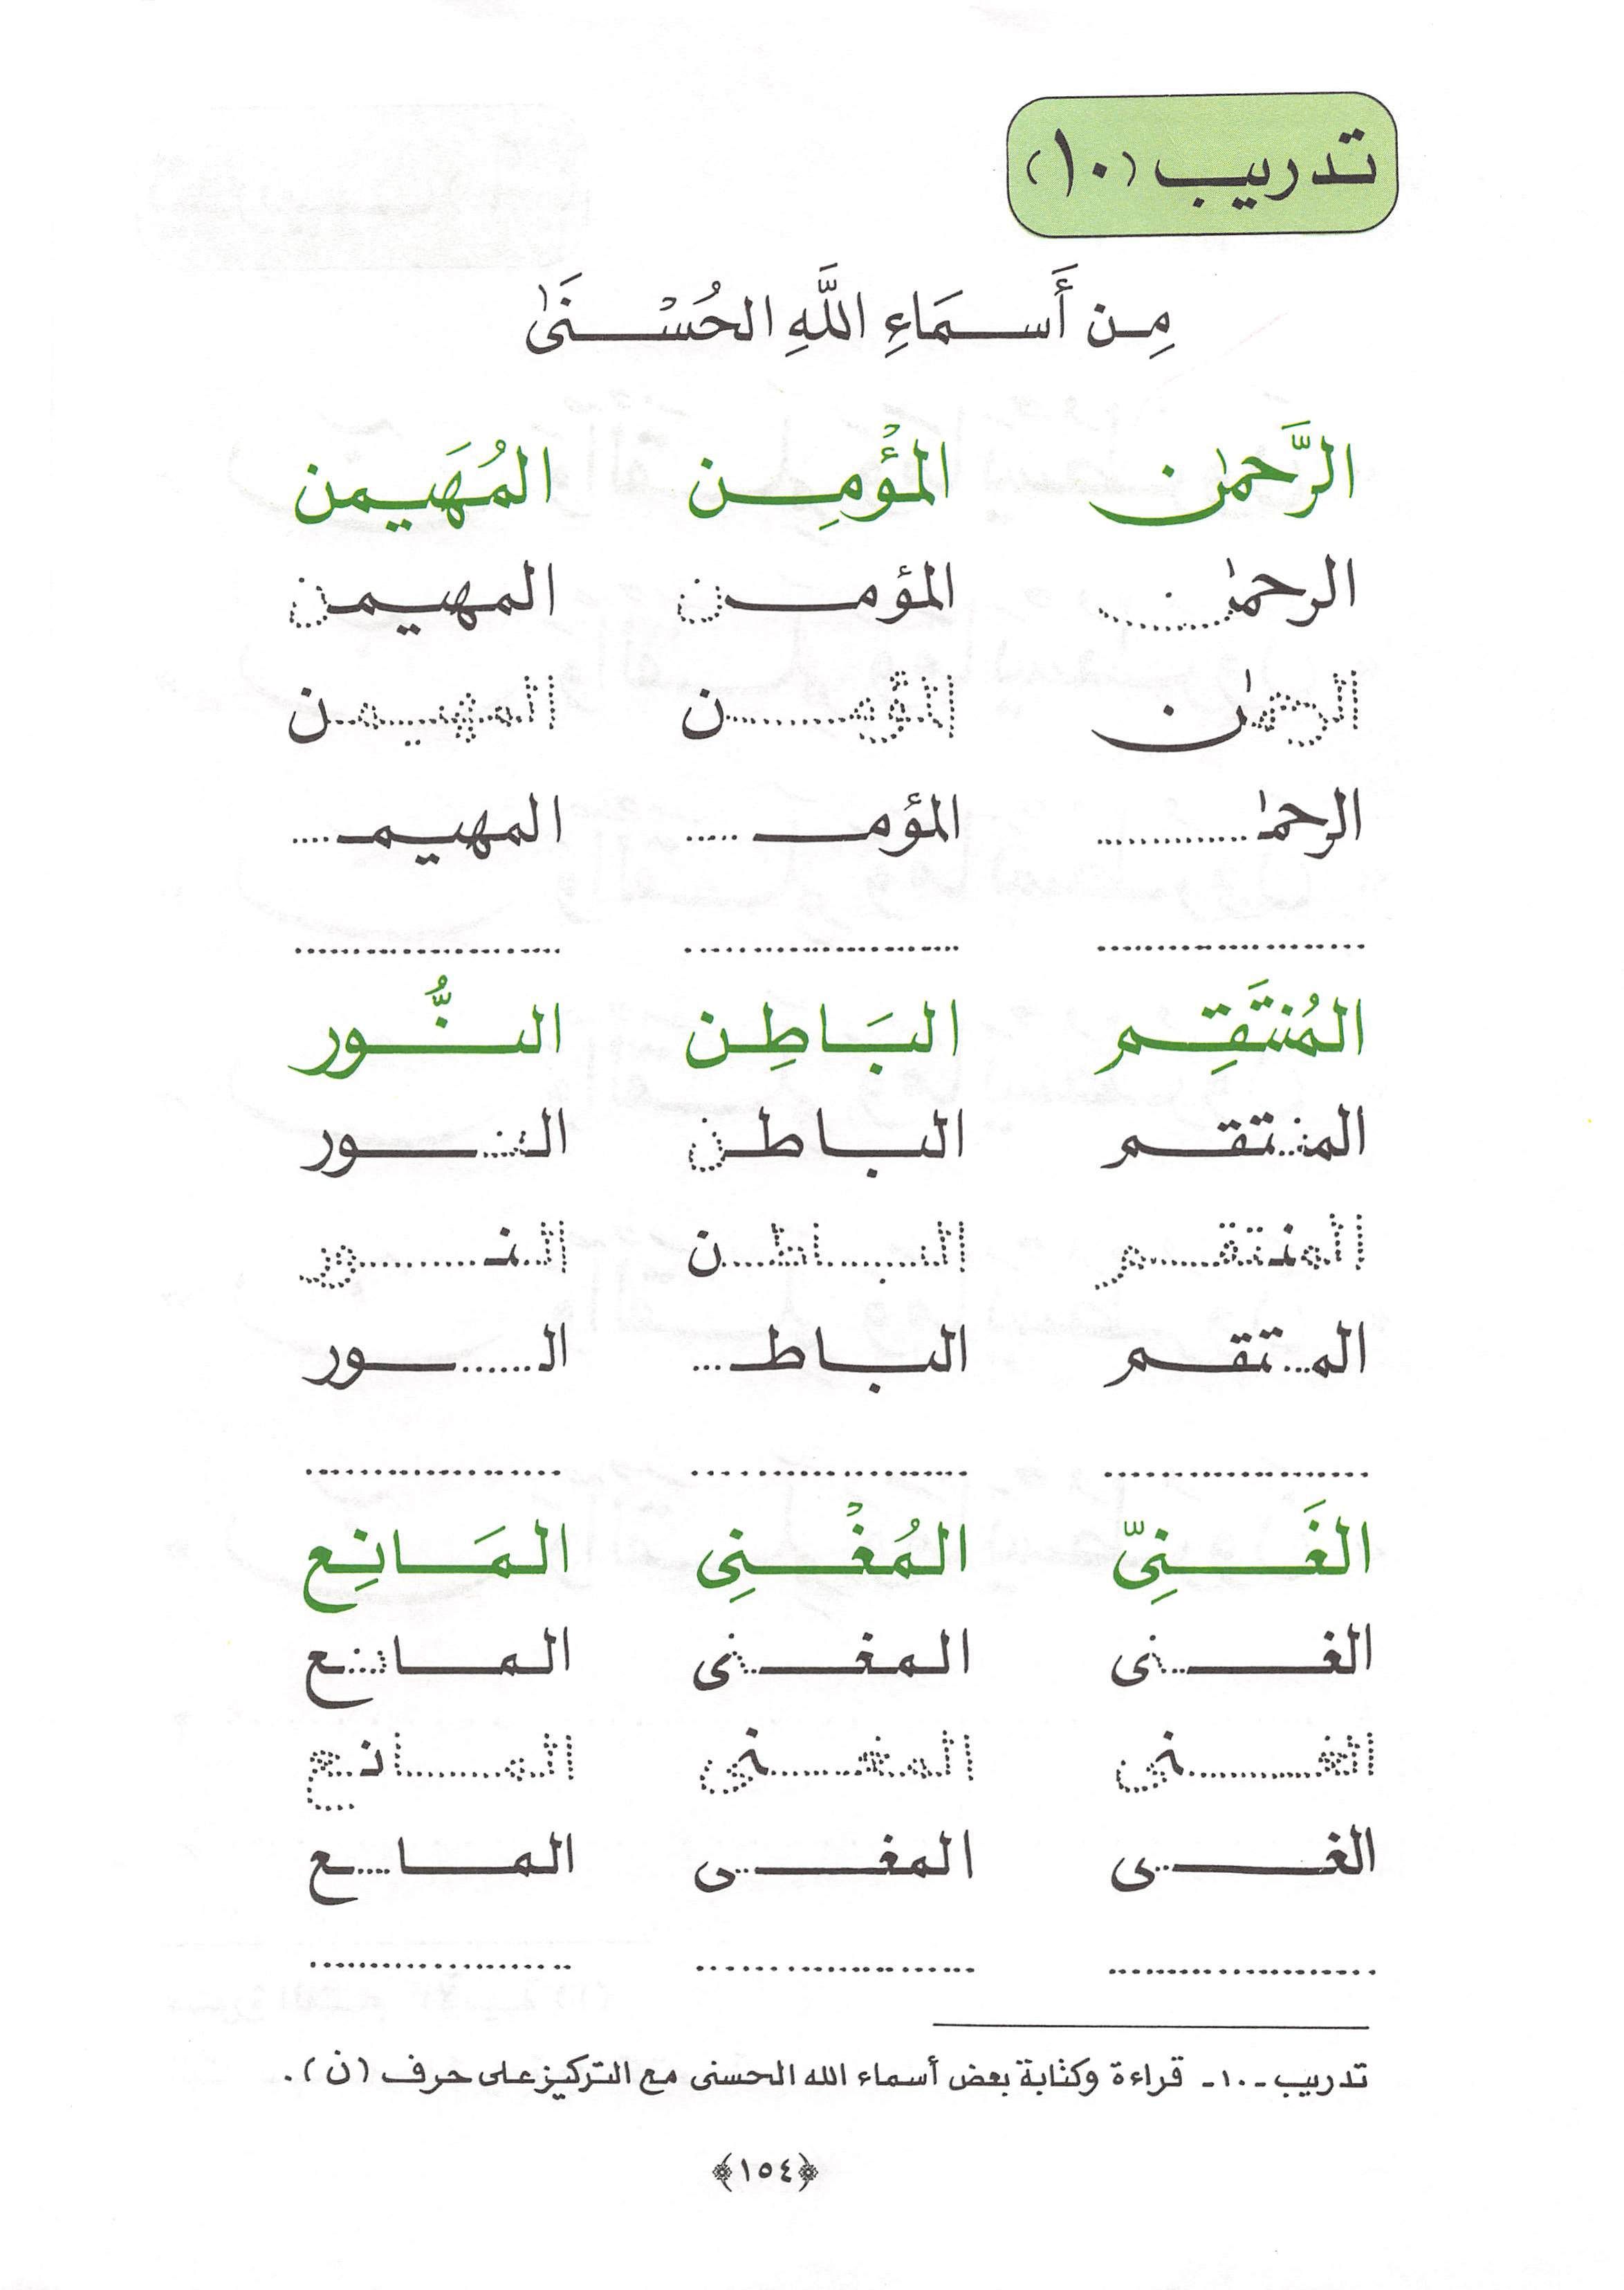 تدريب (١٠)
مِـن أَسـمَاءِ اللَّهِ الحُسْـنَىٰ
الرَّحمٰن المؤْمِـن المُهَيمن
الرحمٰن المؤمـن المهيمن
الرحمٰن المؤمـن المهيمن
الرحمٰـ............ المؤمـ ..... المهيمـ....
........................ ........................ ........................
المُنتَقِـم البَـاطِـن النُّـور
المنتقـم البـاطـن النـور
المنتقـم البـاطـن النـور
المـ...تقـم البـاطـ... الـ.......ـور
........................ ........................ ........................
الغَـنِىّ المُغْـنِى المَـانِع
الغـنى المغـنى المـانع
الغـنى المغـنى المـانع
الغـ..ـى المغـ..ـى المـا....ـع
........................ ........................ ........................
تدريب -١٠- قراءة وكتابة بعض أسماء الله الحسنى مع التركيز على حرف (ن).
﴿١٥٤﴾